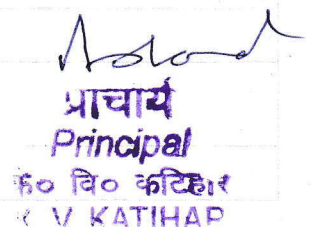 प्राचार्य
Principal
के० वि० कटिहार
K V KATIHAR